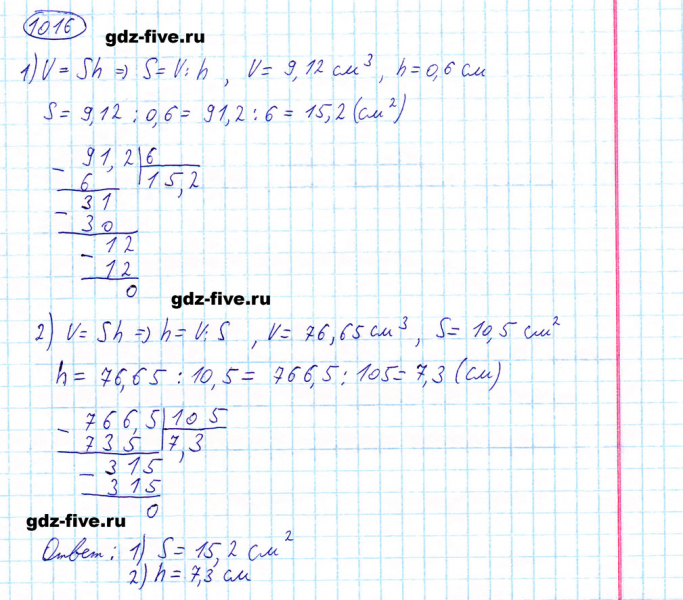 1016
gdz-five.ru
1) V = Sh => S = V : h , V = 9,12 см³ , h = 0,6 см
S = 9,12 : 0,6 = 91,2 : 6 = 15,2 (см²)
- 91,2 | 6
6 | 15,2
- 31
30
- 12
12
0
gdz-five.ru
2) V = Sh => h = V : S , V = 76,65 см³ , S = 10,5 см²
h = 76,65 : 10,5 = 766,5 : 105 = 7,3 (см)
- 766,5 | 105
735 | 7,3
- 315
315
0
gdz-five.ru
Ответ : 1) S = 15,2 см²
2) h = 7,3 см